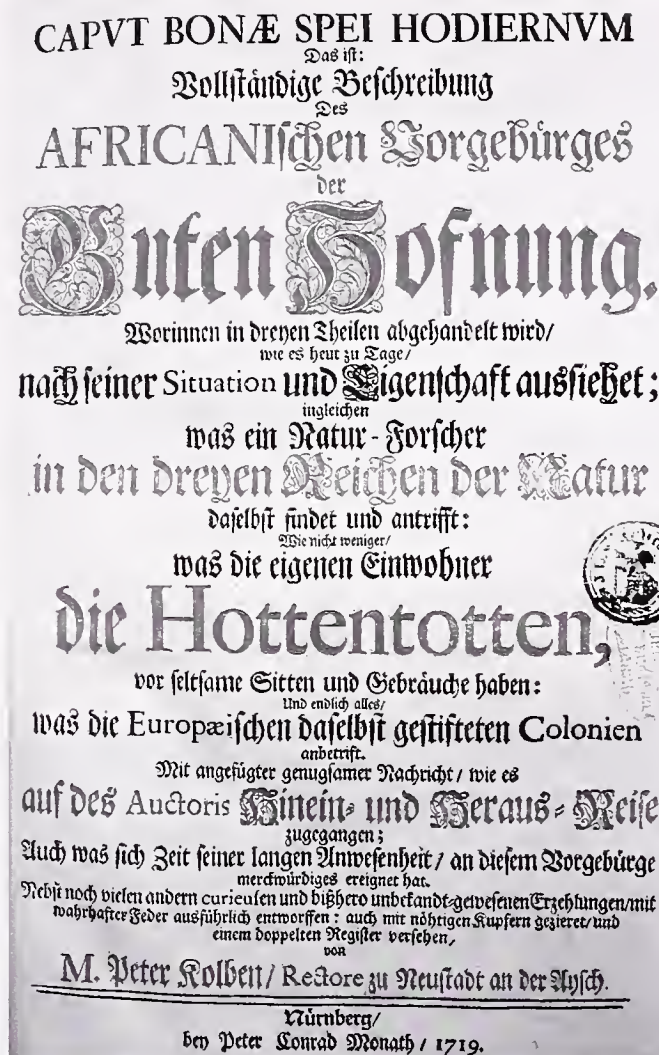 CAPVT BONÆ SPEI HODIERNVM
Das ist:
Vollständige Beschreibung
Des
AFRICANIschen Vorgebürges
der
Guten Hofnung.
Worinnen in dreyen Theilen abgehandelt wird/
wie es heut zu Tage/
nach seiner Situation und Eigenschaft aussiehet;
ingleichen
was ein Natur-Forscher
in den dreyen Reichen der Natur
daselbst findet und antrifft:
Wie nicht weniger/
was die eigenen Einwohner
die Hottentotten,
vor seltsame Sitten und Gebräuche haben:
Und endlich alles/
was die Europæischen daselbst gestifteten Colonien
anbetrift.
Mit angefügter genugsamer Nachricht/ wie es
auf des Auctoris Hinein- und Heraus-Reise
zugegangen;
Auch was sich Zeit seiner langen Anwesenheit/ an diesem Vorgebürge
merckwürdiges ereignet hat.
Nebst noch vielen andern curieusen und bißhero unbekandt-gewesenen Erzehlungen/mit
wahrhafter Feder ausführlich entworffen: auch mit nöhtigen Kupfern gezieret/und
einem doppelten Register versehen,
von
M. Peter Kolben/ Rectore zu Neustadt an der Aysch.
Nürnberg/
bey Peter Conrad Monath/ 1719.